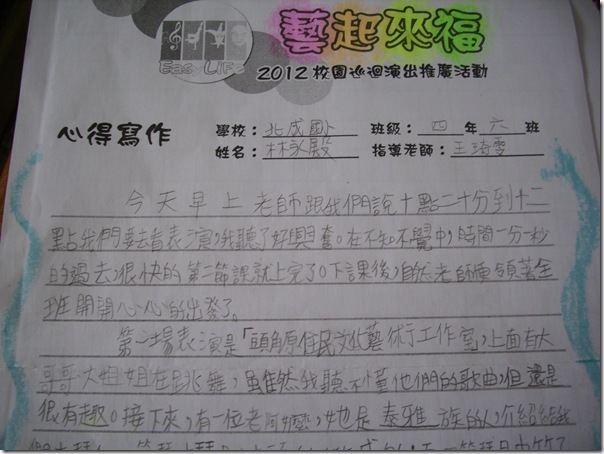 Eas Life
藝起來福
2012校園巡迴演出推廣活動
心得寫作
學校：北成國小 班級：四年六班
姓名：林永殿 指導老師：王琦雯
今天早上老師跟我們說十點二十分到十二
點我們要去看表演，我聽了好興奮。在不知不覺中，時間一分一秒
的過去，很快的第二節課就上完了。下課後，自然老師便領著全
班開開心心的出發了。
第一場表演是「頭角原住民文化藝術工作室，上面有大
哥哥、大姐姐在跳舞，虽隹然我聽不懂他們的歌曲，但還是
很有趣。接下來，有一位老阿嬤，她是泰雅族的人，介紹給我